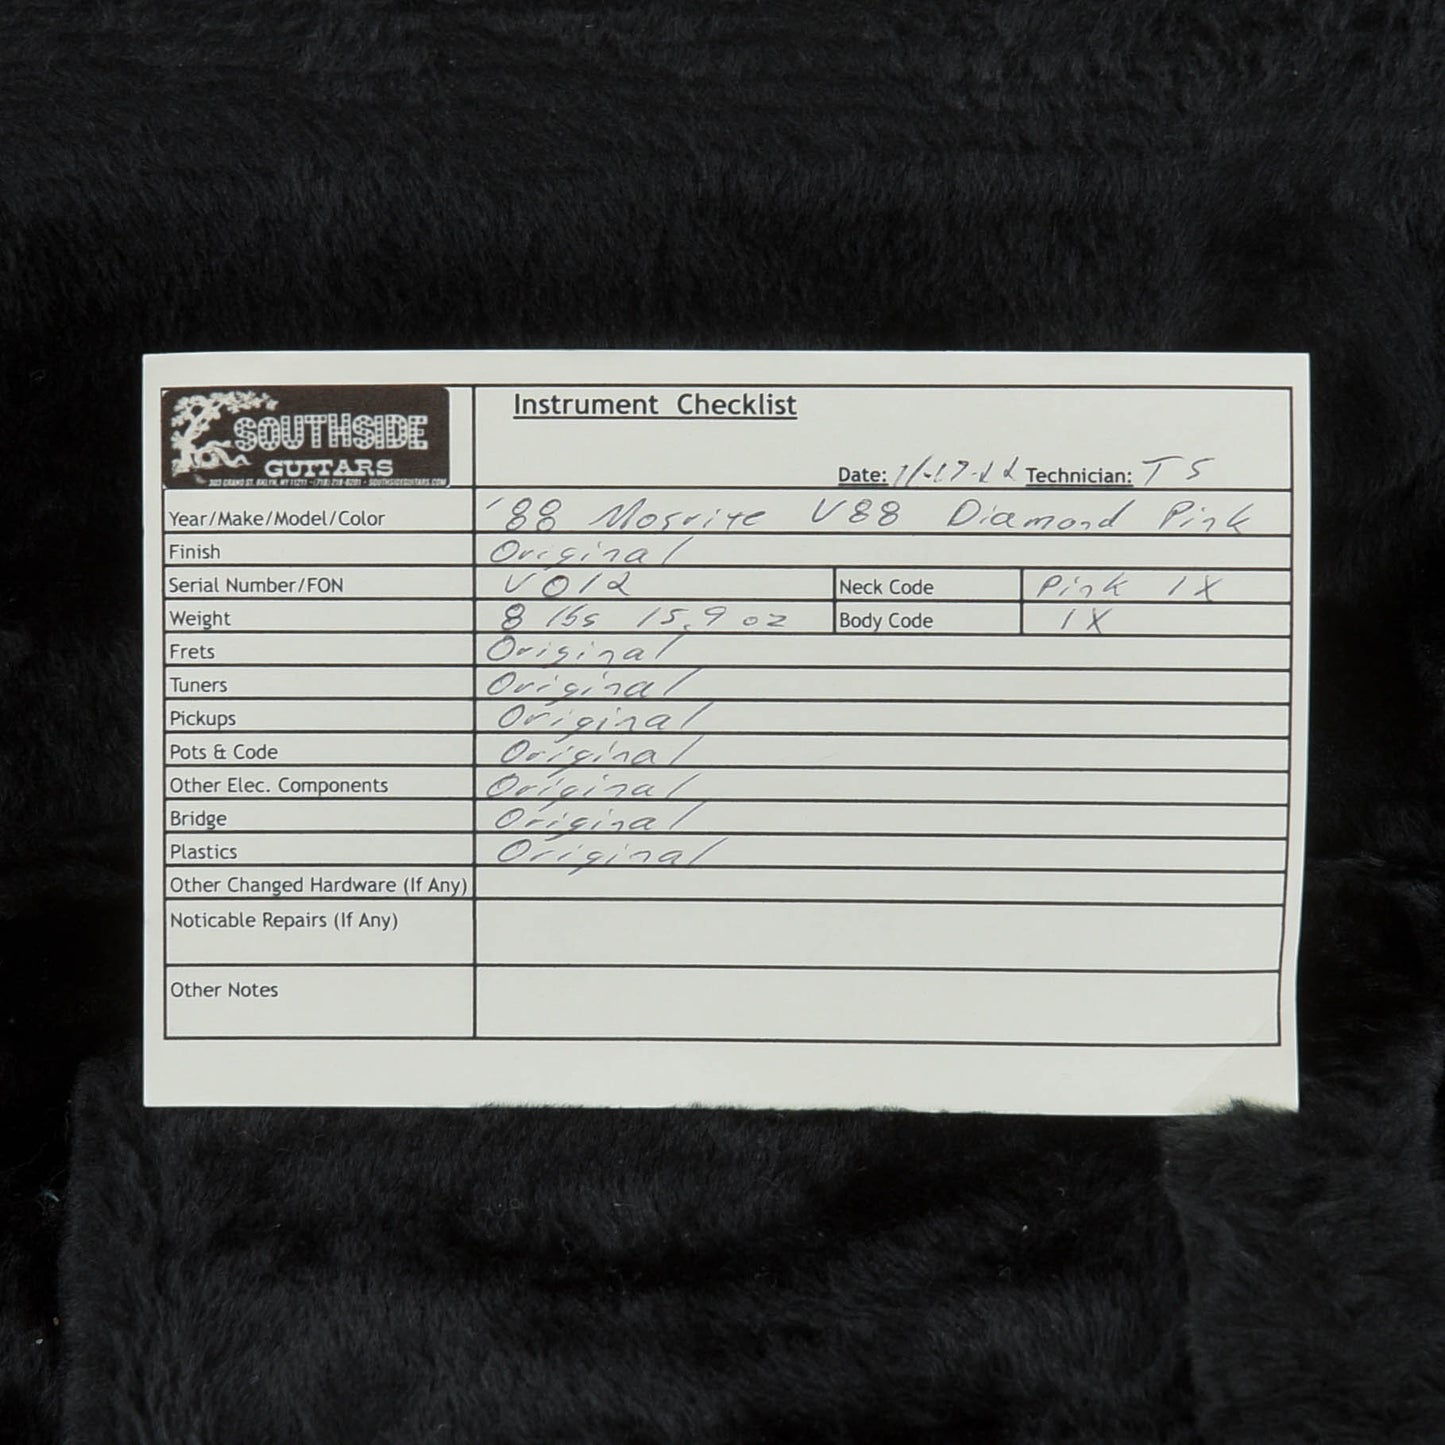 SOUTHSIDE
GUITARS
303 GRAND ST. BKLYN, NY 11211 - (718) 218-8201 - SOUTHSIDEGUITARS.COM
Instrument Checklist
Date: Technician: TS
Year/Make/Model/Color '88 Mosrite V88 Diamond Pink
Finish Original
Serial Number/FON V012 Neck Code Pink 1X
Weight 8 lbs 15.9 oz Body Code 1X
Frets Original
Tuners Original
Pickups Original
Pots & Code Original
Other Elec. Components Original
Bridge Original
Plastics Original
Other Changed Hardware (If Any)
Noticable Repairs (If Any)
Other Notes